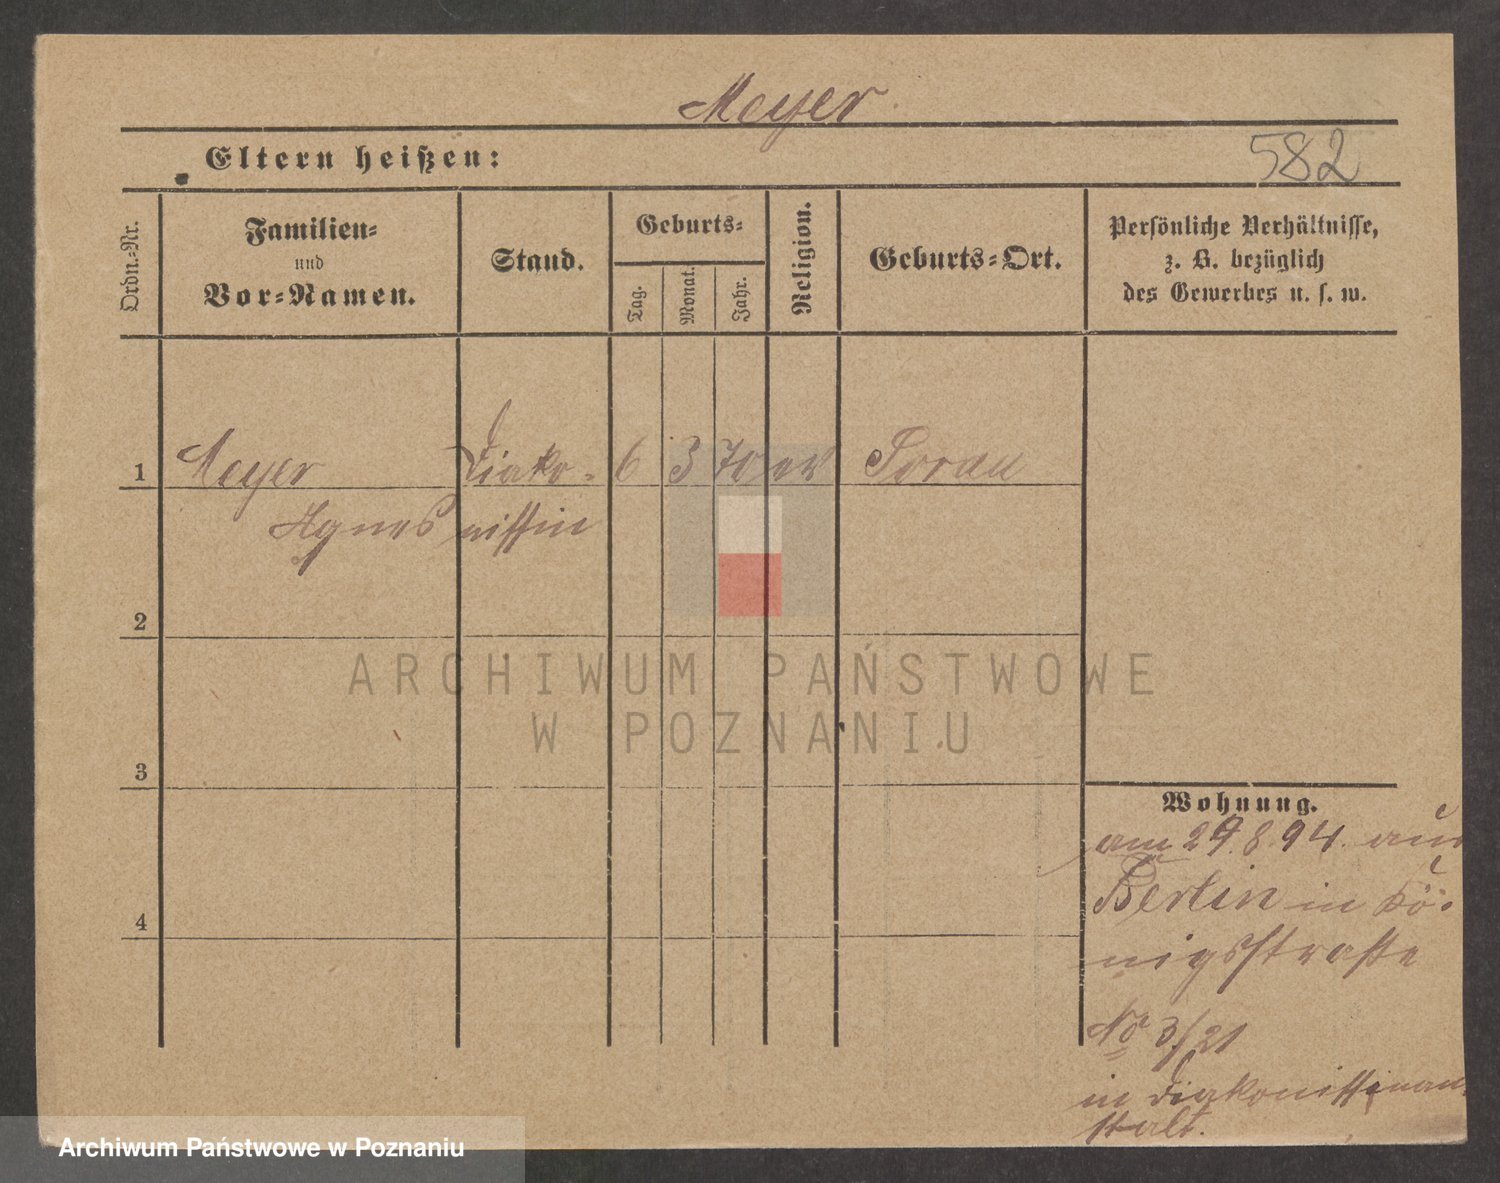 Meyer
582
Eltern heißen:
Ordn.-Nr.
Familien-
und
Vor-Namen.
Stand.
Geburts-
Tag.
Monat.
Jahr.
Religion.
Geburts-Ort.
Persönliche Verhältnisse,
z. B. bezüglich
des Gewerbes u. s. w.
1 Meyer Diako- 6 3 70 ev Sorau
Agnes nissin
2
3
4
Wohnung.
am 29.8.94. aus
Berlin in Kö-
nigsstraße
No 3/21
in Diakonissinan-
stalt.
ARCHIWUM PAŃSTWOWE
W POZNANIU
Archiwum Państwowe w Poznaniu